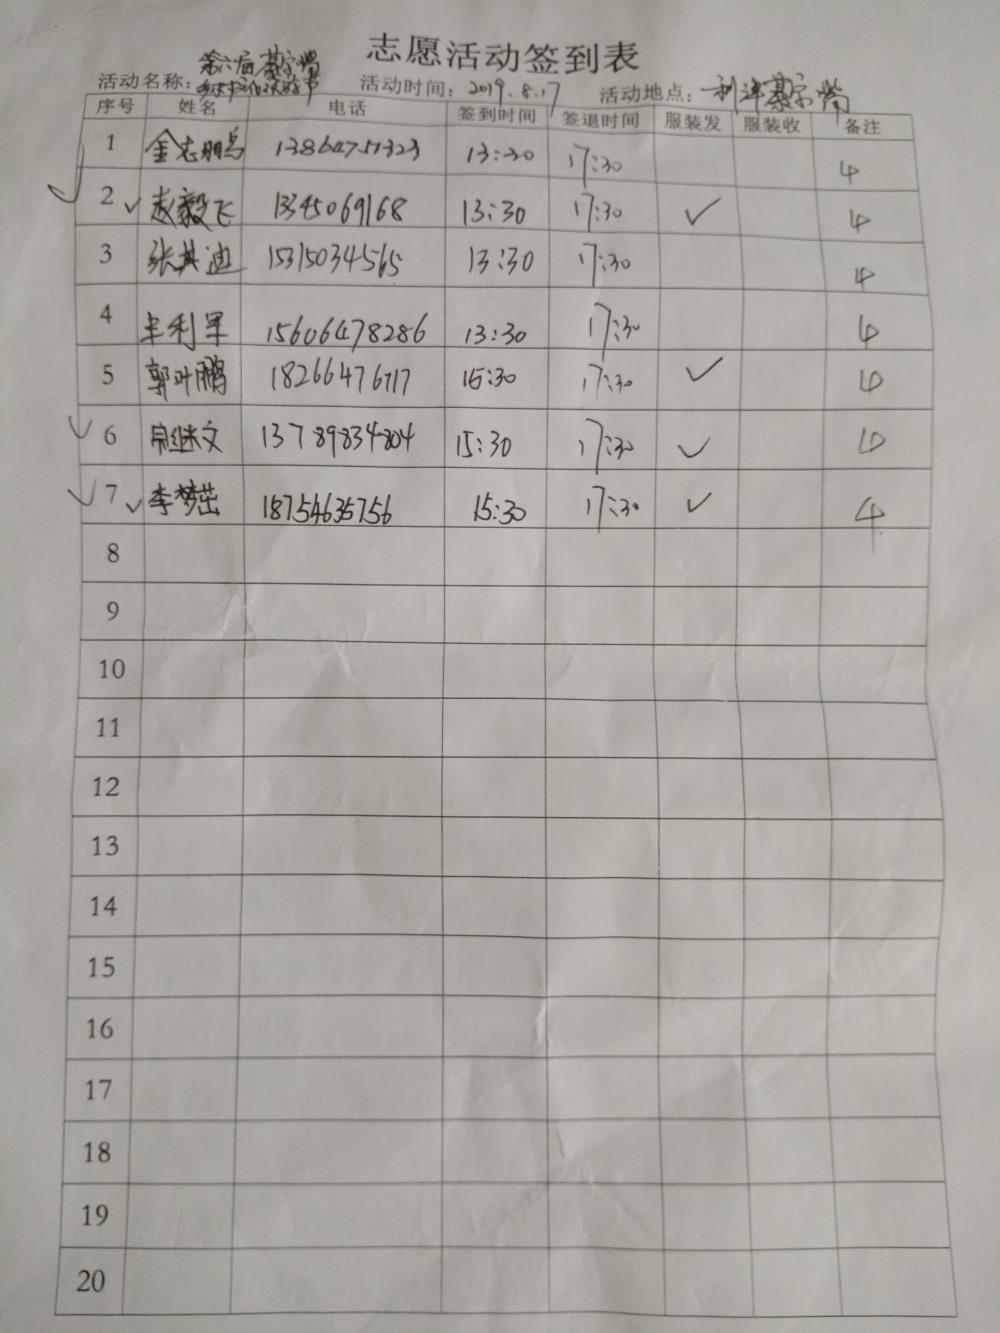 志愿活动签到表
第六届綦家嘴
活动名称： 活动时间：2019.8.17 活动地点：利津綦家嘴
序号 姓名 电话 签到时间 签退时间 服装发 服装收 备注
1 金志鹏 13:30 17:30 4
2 ✓ 赵毅飞 1345069168 13:30 17:30 ✓ 4
3 张其迪 15315034565 13:30 17:30 4
4 利军 15606478286 13:30 17:30 4
5 郭叶鹏 15:30 17:30 ✓ 4
✓ 6 继文 13789834804 15:30 17:30 ✓ 4
✓ 7 ✓ 李梦茁 18754635756 15:30 17:30 ✓ 4
8
9
10
11
12
13
14
15
16
17
18
19
20